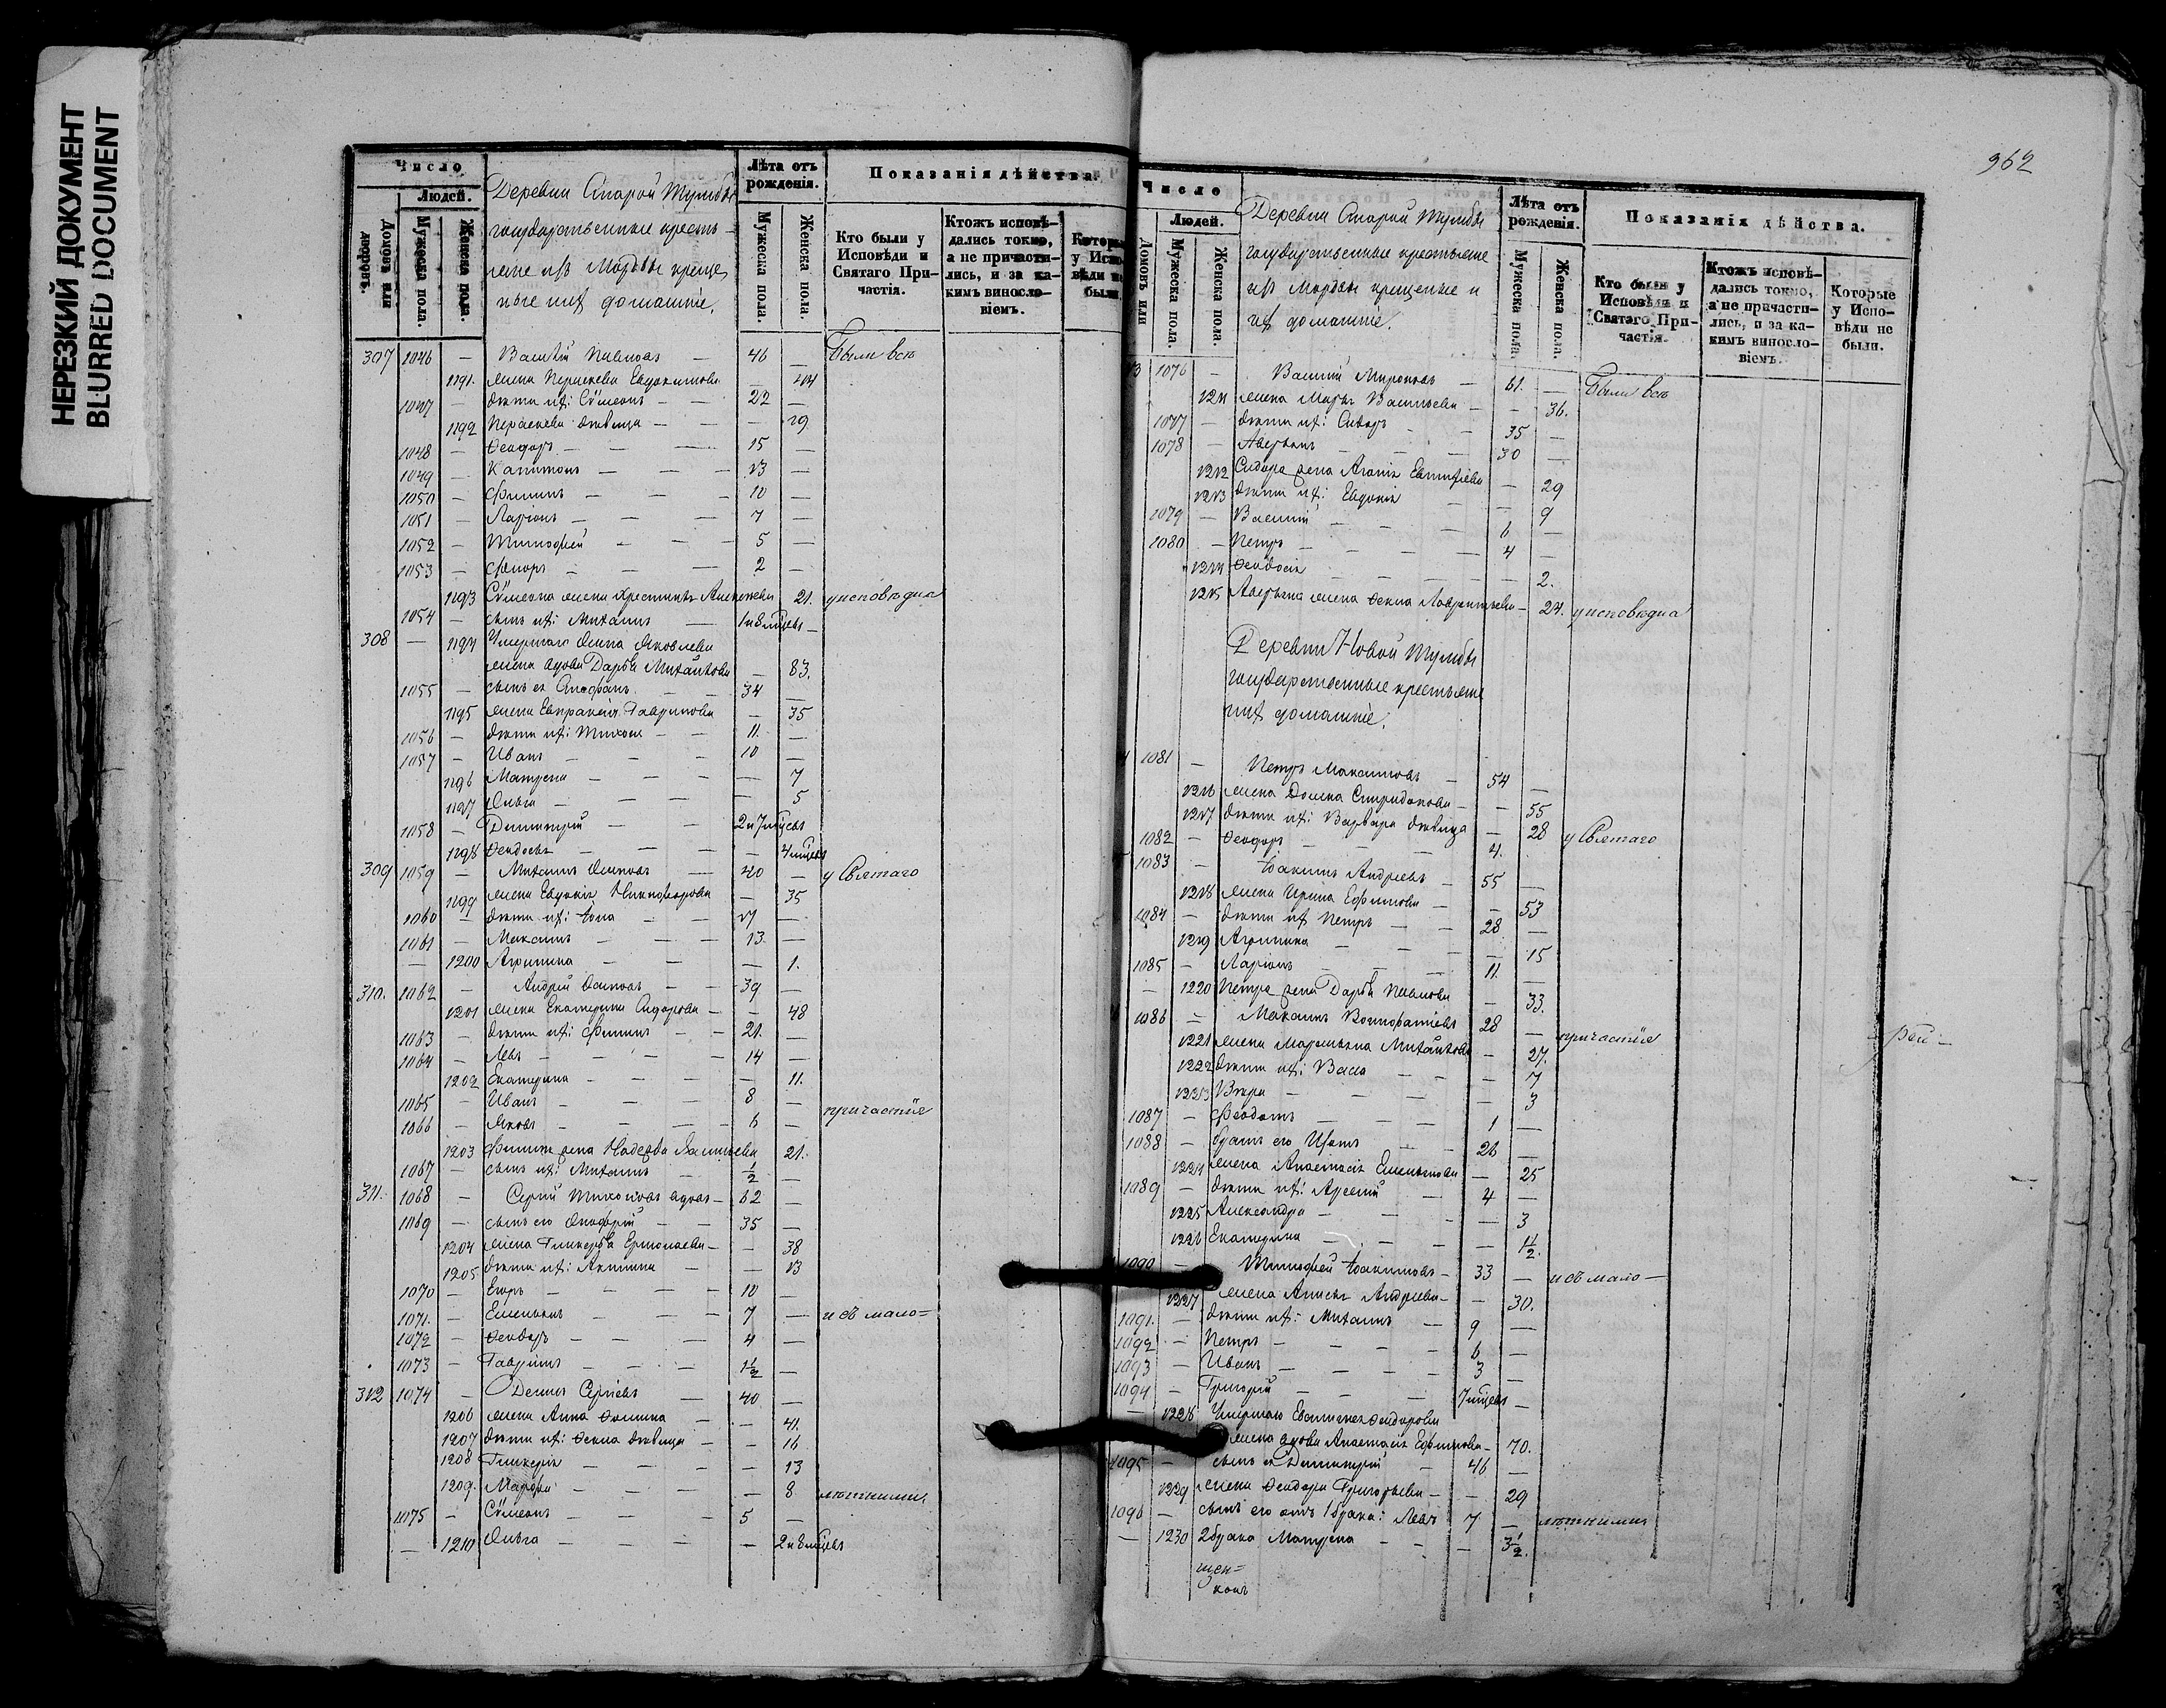 НЕРЕЗКИЙ ДОКУМЕНТ
BLURRED DOCUMENT
Число
Людей.
Домовъ или дворовъ.
Мужеска пола.
Женска пола.
Деревни Старой Тумбы
государственные кресть-
яне изъ Мордвы креще
ные и их домашніе.
Лѣта отъ рожденія.
Мужеска пола.
Женска пола.
Показанія дѣйства
Кто были у Исповѣди и Святаго При-частія.
Ктожъ исповѣ-дались токмо, а не причасти-лись, и за ка-кимъ винословіемъ.
307 1046 — Василій Павловъ — 46 — Были всѣ
1191. жена Параскева Евдокимова — 44
1047 — дѣти их: Сѵмеонъ — 22 —
1192 Параскева дѣвица — — 19
1048 — Ѳеодоръ — 15 —
1049 — Капитонъ — 13 —
1050 — Филипъ — 10 —
1051 — Ларіонъ — 7 —
1052 — Тимофей — 5 —
1053 — Флоръ — 2 —
1193 Сѵмеона жена Христина Алексѣева 21. у исповѣди
1054 — сынъ их: Михаилъ — 1 и 8 мѣсяцъ —
308 — 1194 Умершаго Осипа Яковлева
жена вдова Дарья Михайлова — 83.
1055 — сынъ ея Стефанъ — 34 —
1195 жена Евпраксія Гаврилова — 35
1056 — дѣти их: Тихонъ — 11. —
1057 — Иванъ — 10 —
1196 Матрена — — 7
1197 Ольга — — 5
1058 — Димитрій — 2 и 7 мѣсяцъ
1198 Ѳеодосья — — 4 мѣсяцъ
309 1059 — Михаилъ Осиповъ — 40 — у Святаго
1199 жена Евдокія Никифорова — 35
1060 — дѣти их: Іона — 17 —
1061 — Максимъ — 13. —
— 1200 Агрипина — — 1.
310. 1062 — Андрей Осиповъ — 39 —
1201 жена Екатерина Сидорова — — 48
1063 — дѣти их: Филипъ — 21. —
1064 — Левъ — 14 —
1202 Екатерина — — 11.
1065 — Иванъ — 8 —
1066 — Яковъ — 6 — причастія
1203 Филипа жена Надежда Васильева 21.
1067 — сынъ их: Михаилъ — 1/2 —
311. 1068 — Сергій Тихоновъ вдовъ — 62 —
1069 — сынъ его Онофрій — 35 —
1204 жена Гликерья Ермолаева — — 38
1205 дѣти их: Акилина — — 13
1070 — Егоръ — 10 —
1071. — Емельянъ — 7 — и съ мало=
1072 — Ѳеодоръ — 4 —
1073 — Гавріилъ — 1 1/2 —
312 1074 — Денисъ Сергіевъ — 40 —
1206 жена Анна Ѳомина — — 41.
1207 дѣти их: Ѳекла дѣвица — — 16
1208 Гликерія — — 13
1209. Марфа — — 8 лѣтними
1075 — Сѵмеонъ — 5 —
— 1210 Ольга — — 2 и 8 мѣсяцъ
962
Число
Людей.
Домовъ или
Мужеска пола.
Женска пола.
Деревни Старой Тумбы
государственные крестьяне
изъ Мордвы крещеные и
их домашніе.
Лѣта отъ рожденія.
Мужеска пола
Женска пола.
Показанія дѣйства.
Кто были у Исповѣди и Святаго При-частія.
Ктожъ исповѣ-дались токмо, а не причасти-лись, и за ка-кимъ винословіемъ.
Которые у Испо-вѣди не были.
3 1076 — Василій Мироновъ — 61. — Были всѣ
1211 жена Марья Васильева — — 36.
1077 — дѣти их: Сидоръ — 35 —
1078 — Аверьянъ — 30 —
1212 Сидора жена Агапія Евтифіева — 29
1213 дѣти их: Евдокія — 9
1079 — Василій — 6 —
1080 — Петръ — 4 —
1214 Ѳеодосія — — 2.
1215 Аверьяна жена Ѳекла Лаврентьева — 24. у исповѣди
Деревни Новой Тумбы
государственные крестьяне
и их домашніе.
1081 — Петръ Максимовъ — 54 —
1216 жена Домна Спиридонова — — 55
1217 дѣти их: Варвара дѣвица — 28 у Святаго
1082 — Ѳеодоръ — 4. —
1083 — Іоакимъ Андреевъ — 55 —
1218 жена Ирина Ефимова — — 53
1084 — дѣти их Петръ — 28 —
1219 Агрипина — — 15
1085 — Ларіонъ — 11. —
— 1220 Петра жена Дарья Павлова — 33.
1086 — Максимъ Вонифатіевъ 28 — причастія
1221 жена Марьяна Михайлова — 27.
1222 дѣти их: Васса — — 7
1223 Вѣра — — 3
1087 — Феодотъ — 1 —
1088 — братъ его Игнатъ — 26 —
1224 жена Анастасія Емельянова — 25
1089 — дѣти их: Арсеній — 4 —
1225 Александра — — 3
1226 Екатерина — — 1 1/2.
1090 — Тимофей Іоакимовъ — 33 — и съ мало —
1227 жена Анисья Андреева — — 30.
1091. — дѣти их: Михаилъ — 9 —
1092 — Петръ — 6 —
1093 — Иванъ — 3 —
1094 — Григорій — 7 мѣсяцъ —
— 1228 Умершаго Ѳеодорова
жена вдова Анастасія Ефимова — 70.
1095 — сынъ ея Димитрій — 46 —
1229 жена Ѳеодора Григорьева — — 29
1096 — сынъ его отъ 1 брака: Левъ 7 — лѣтними
— 1230 2 брака Матрена — — 3 1/2.
щен=
конъ